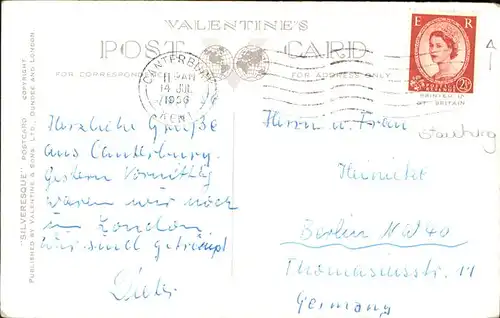 VALENTINE'S
POST CARD
FOR CORRESPONDENCE
FOR ADDRESS ONLY
CANTERBURY
AM
14 JUL
1956
KENT
E R
2½D
POSTAGE REVENUE
PRINTED IN
GT BRITAIN
"SILVERESQUE" POSTCARD. COPYRIGHT.
PUBLISHED BY VALENTINE & SONS. LTD., DUNDEE AND LONDON.
Herzliche Grüße
aus Canterbury.
Gestern Vormittag
waren wir noch
in London.
wir sind getrampt
Dieter
Herrn u. Frau
Heinicke
Berlin NW 40
Thomasiusstr. 11
Germany